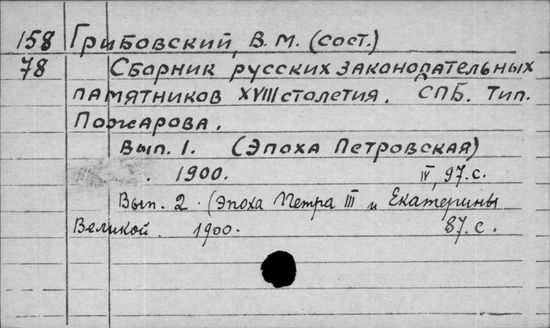 158 Грибовский, В. М. (сост.)
78 Сборник русских законодательных
памятников XVIII столетия. СПБ. Тип.
Пожарова.
Вып. 1. (Эпоха Петровская)
. 1900. IV, 97. с.
Вып. 2. (Эпоха Петра III и Екатерины
Великой. 1900. 87. с.